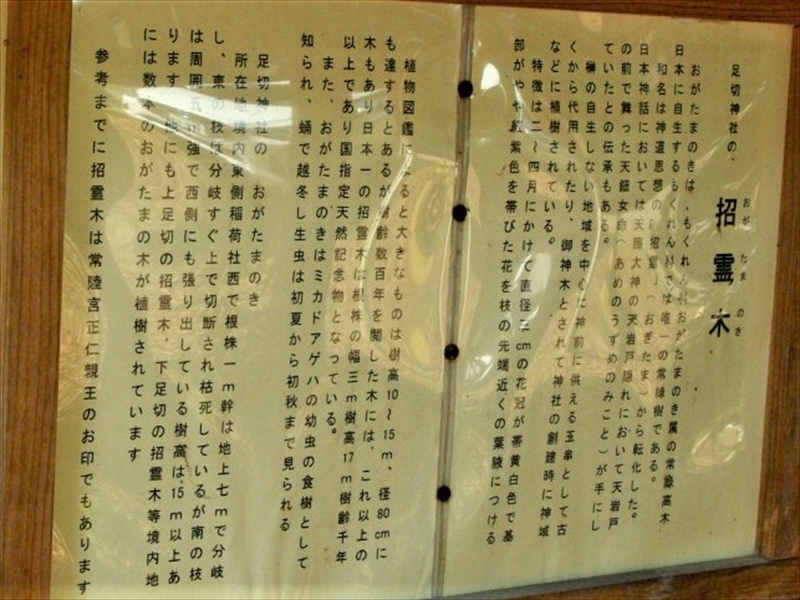 足切神社の、
招霊木
おが たま のき
おがたまのきは、もくれん科おがたまのき属の常緑高木
日本に自生するもくれん科では唯一の常緑樹である。
和名は神道思想の「招霊」(おぎたま)から転化した。
日本神話においては天照大神の天岩戸隠れにおいて天岩戸
の前で舞った天鈿女命(あめのうずめのみこと)が手にし
ていたとの伝承もある。
榊の自生しない地域を中心に神前に供える玉串として古
くから代用されたり、御神木とされて神社の創建時に神域
などに植樹されている。
特徴は二～四月にかけて直径三cmの花冠が帯黄白色で基
部がやや紅紫色を帯びた花を枝の先端近くの葉腋につける
植物図鑑によると大きなものは樹高10～15m、径80cmに
も達するとあるが樹齢数百年を閲した木には、これ以上の
木もあり日本一の招霊木は根株の幅三m樹高17m樹齢千年
以上であり国指定天然記念物となっている。
また、おがたまのきはミカドアゲハの幼虫の食樹として
知られ、蛹で越冬し生虫は初夏から初秋まで見られる
足切神社の おがたまのき
所在地境内東側稲荷社西で根株一m幹は地上七mで分岐
し、東の枝は分岐すぐ上で切断され枯死しているが南の枝
は周囲五m強で西側にも張り出している樹高は、15m以上あ
ります 他にも上足切の招霊木、下足切の招霊木等境内地
には数本のおがたまの木が植樹されています
参考までに招霊木は常陸宮正仁親王のお印でもあります